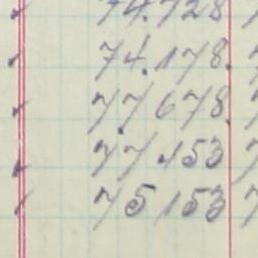 74.728
74.178.
77.678
77.153
75.153